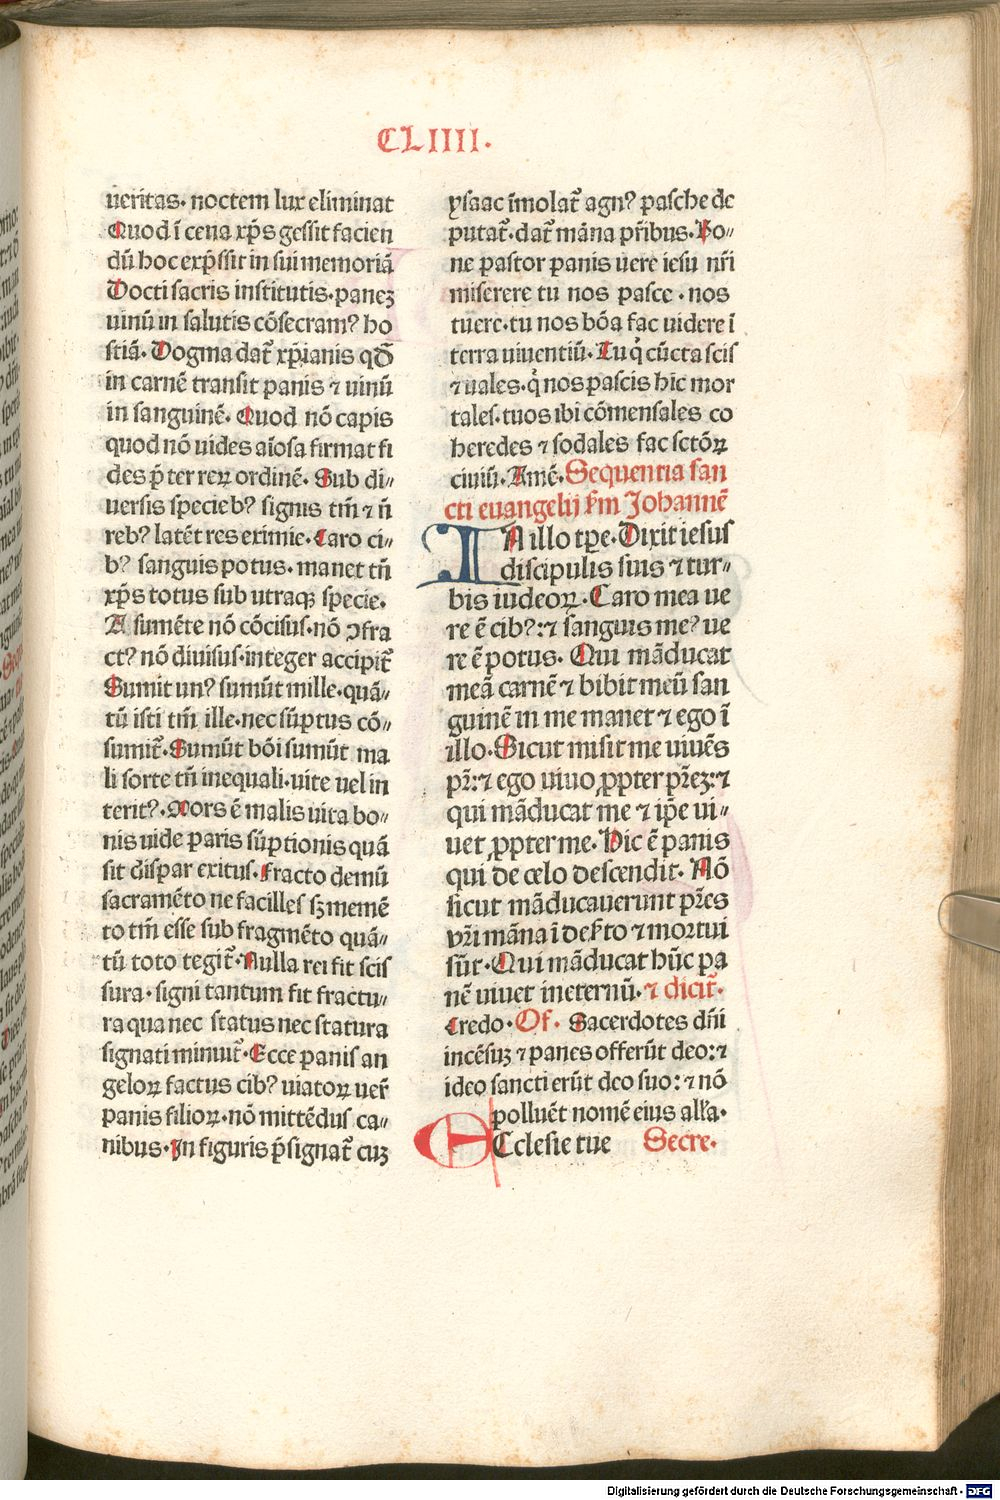 CLIIII.
ueritas. noctem lux eliminat
Quod ī cena xp̄s gessit facien
dū hoc exp̄ssit in sui memoriā
Docti sacris institutis.panez
uinū in salutis cōsecram? ho
stiā. Dogma dat᷑ xp̄ianis qđ
in carnē transit panis ⁊ uinū
in sanguinē. Quod nō capis
quod nō uides aīosa firmat fi
des p̄ter reꝝ ordinē. Sub di〃
uersis specieb? signis tm̄ ⁊ n̄
reb? latēt res eximie. Caro ci〃
b? sanguis potus. manet tn̄
xp̄s totus sub utraqꝫ specie.
A sumēte nō cōcisus.nō ꝯfra
ct? nō diuisus.integer accipit᷑
Sumit un? sumūt mille.quā〃
tū isti tm̄ ille.nec sūptus cō〃
sumit᷑. Sumūt bōi sumūt ma
li sorte tn̄ inequali.uite uel in
terit?. Mors ē malis uita bo〃
nis uide paris sūptionis quā
sit dispar exitus. Fracto demū
sacramēto ne facilles sꝫ memē
to tm̄ esse sub fragmēto quā〃
tū toto tegit᷑. Nulla rei fit scis
sura. signi tantum fit fractu〃
ra qua nec status nec statura
signati minuit᷑. Ecce panis an
geloꝝ factus cib? uiatoꝝ uer̄
panis filioꝝ. nō mittēdus ca〃
nibus. In figuris p̄signat᷑ cuꝫ
ysaac īmolat᷑ agn? pasche de
putat᷑. dat᷑ māna pr̄ibus. Bo〃
ne pastor panis uere iesu nr̄i
miserere tu nos pasce . nos
tuere. tu nos bōa fac uidere ī
terra uiuentiū. Tu q̇ cūcta scis
⁊ uales. q̇ nos pascis hic mor
tales. tuos ibi cōmensales co
heredes ⁊ sodales fac sctōꝝ
ciuiū. Amē. Sequentia san
cti euangelij ẜm Johannē
IN illo tꝑe. Dixit iesus
discipulis suis ⁊ tur〃
bis iudeoꝝ. Caro mea ue
re ē cib?: ⁊ sanguis me? ue
re ē potus. Qui māducat
meā carnē ⁊ bibit meū san
guinē in me manet ⁊ ego ī
illo. Sicut misit me uiuēs
pr̄: ⁊ ego uiuo ꝓpter pr̄eꝫ: ⁊
qui māducat me ⁊ ip̄e ui〃
uet ꝓpter me. Hic ē panis
qui de celo descendit. Nō
sicut māducauerunt pr̄es
vr̄i māna ī deẜto ⁊ mortui
sūt. Qui māducat hūc pa
nē uiuet in eternū. ⁊ dicit᷑.
Credo. Of. Sacerdotes dn̄i
incēsuꝫ ⁊ panes offerūt deo: ⁊
ideo sancti erūt deo suo: ⁊ nō
polluēt nomē eius all'a.
ECclesie tue Secre.
Digitalisierung gefördert durch die Deutsche Forschungsgemeinschaft - DFG